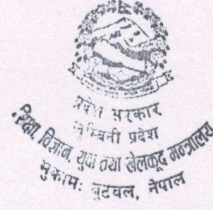 प्रदेश सरकार
लुम्बिनी प्रदेश
शिक्षा, विज्ञान, युवा तथा खेलकुद मन्त्रालय
मुकामः बुटवल, नेपाल